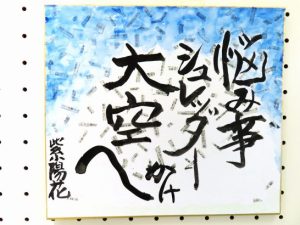 悩み事
シュレッダー
かけ
大空へ
紫陽花